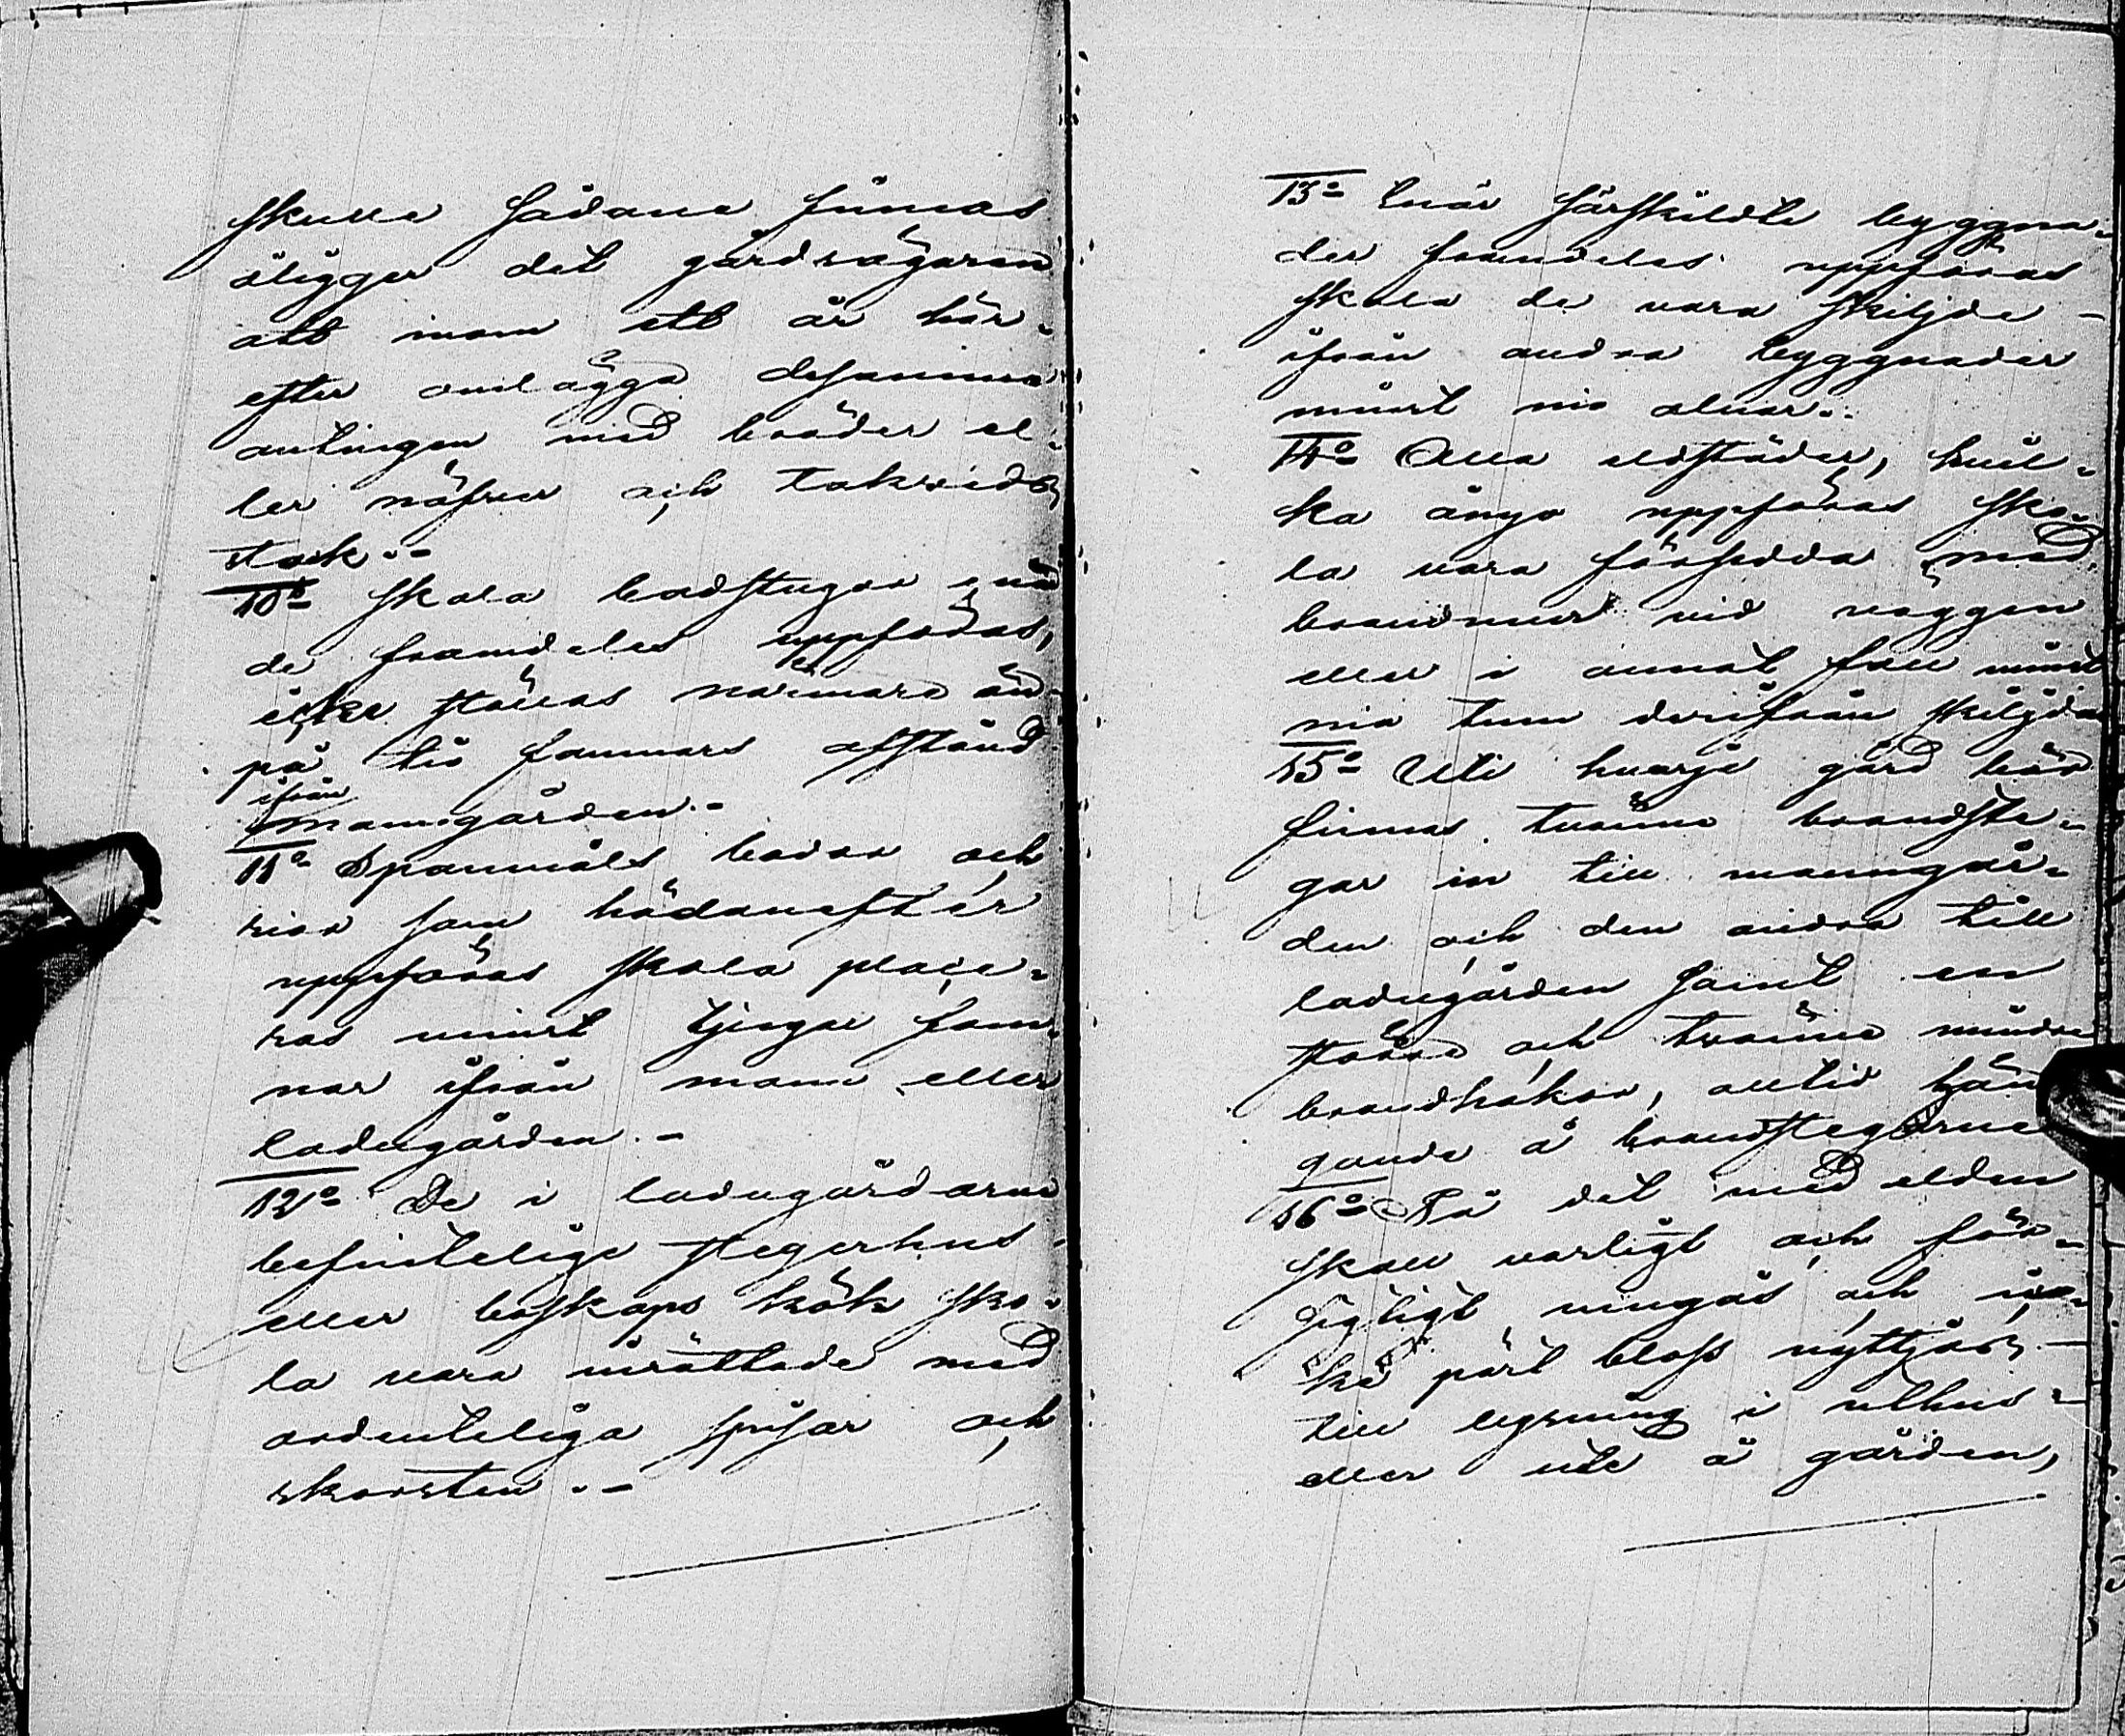 skulle sådane finnas
åligger det gårdsägaren
att inom ett år här-
efter omlägga desamma
antingen med bräder el-
ler näfver och takveds
stock.-
10o Skola badstugor, när
de framdeles uppföras,
icke ställas närmare än
på tio famnars afstånd
ifrån
manngården.-
11o Spanmåls bodar och
rior som hädanefter
uppföras skola place-
ras minst tjugu fam-
nar ifrån mann eller
ladugården.-
12o De i ladugårdarne
befintelige stegerhus
eller boskaps kök sko-
la vara inrättade med
ordenteliga spisar och
skorsten.-
13o Enär särskildte byggna-
der framdeles uppföras
skola de vara skiljde
ifrån andra byggnader
minst nio alnar.-
14o Alla eldstäder, hvil-
ka ånyo uppföras sko-
la vara försedda med
brandmur vid väggen
eller i annat fall minst
nio tum derifrån skiljda
15o Uti hvarje gård bör
finnas tvänne brandste-
gar en till manngår-
den och den andra till
ladugården samt en
större och tvänne mindre
brandhakar, alltid hän
gande å brandstegarne
16o På det med elden
skall varligt och för-
sigtigt umgås och ic-
ke pärt bloss nyttjas
till lysning i uthus
eller ute å gården,